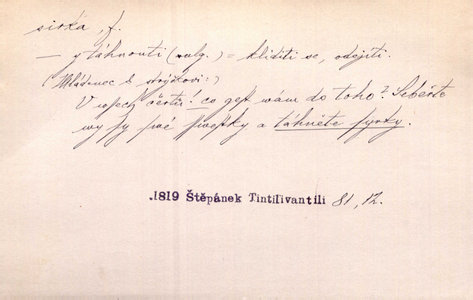 sirka, f.
— y táhnouti (vulg.) = kliditi se, odejíti.
(Mládenec k strýčkovi:)
V wssech čertů! co gest wám do toho? Seberte
wy sy swé sswestky a táhněte syrky.
.1819 Štěpánek Tintilivantili 81, 12.